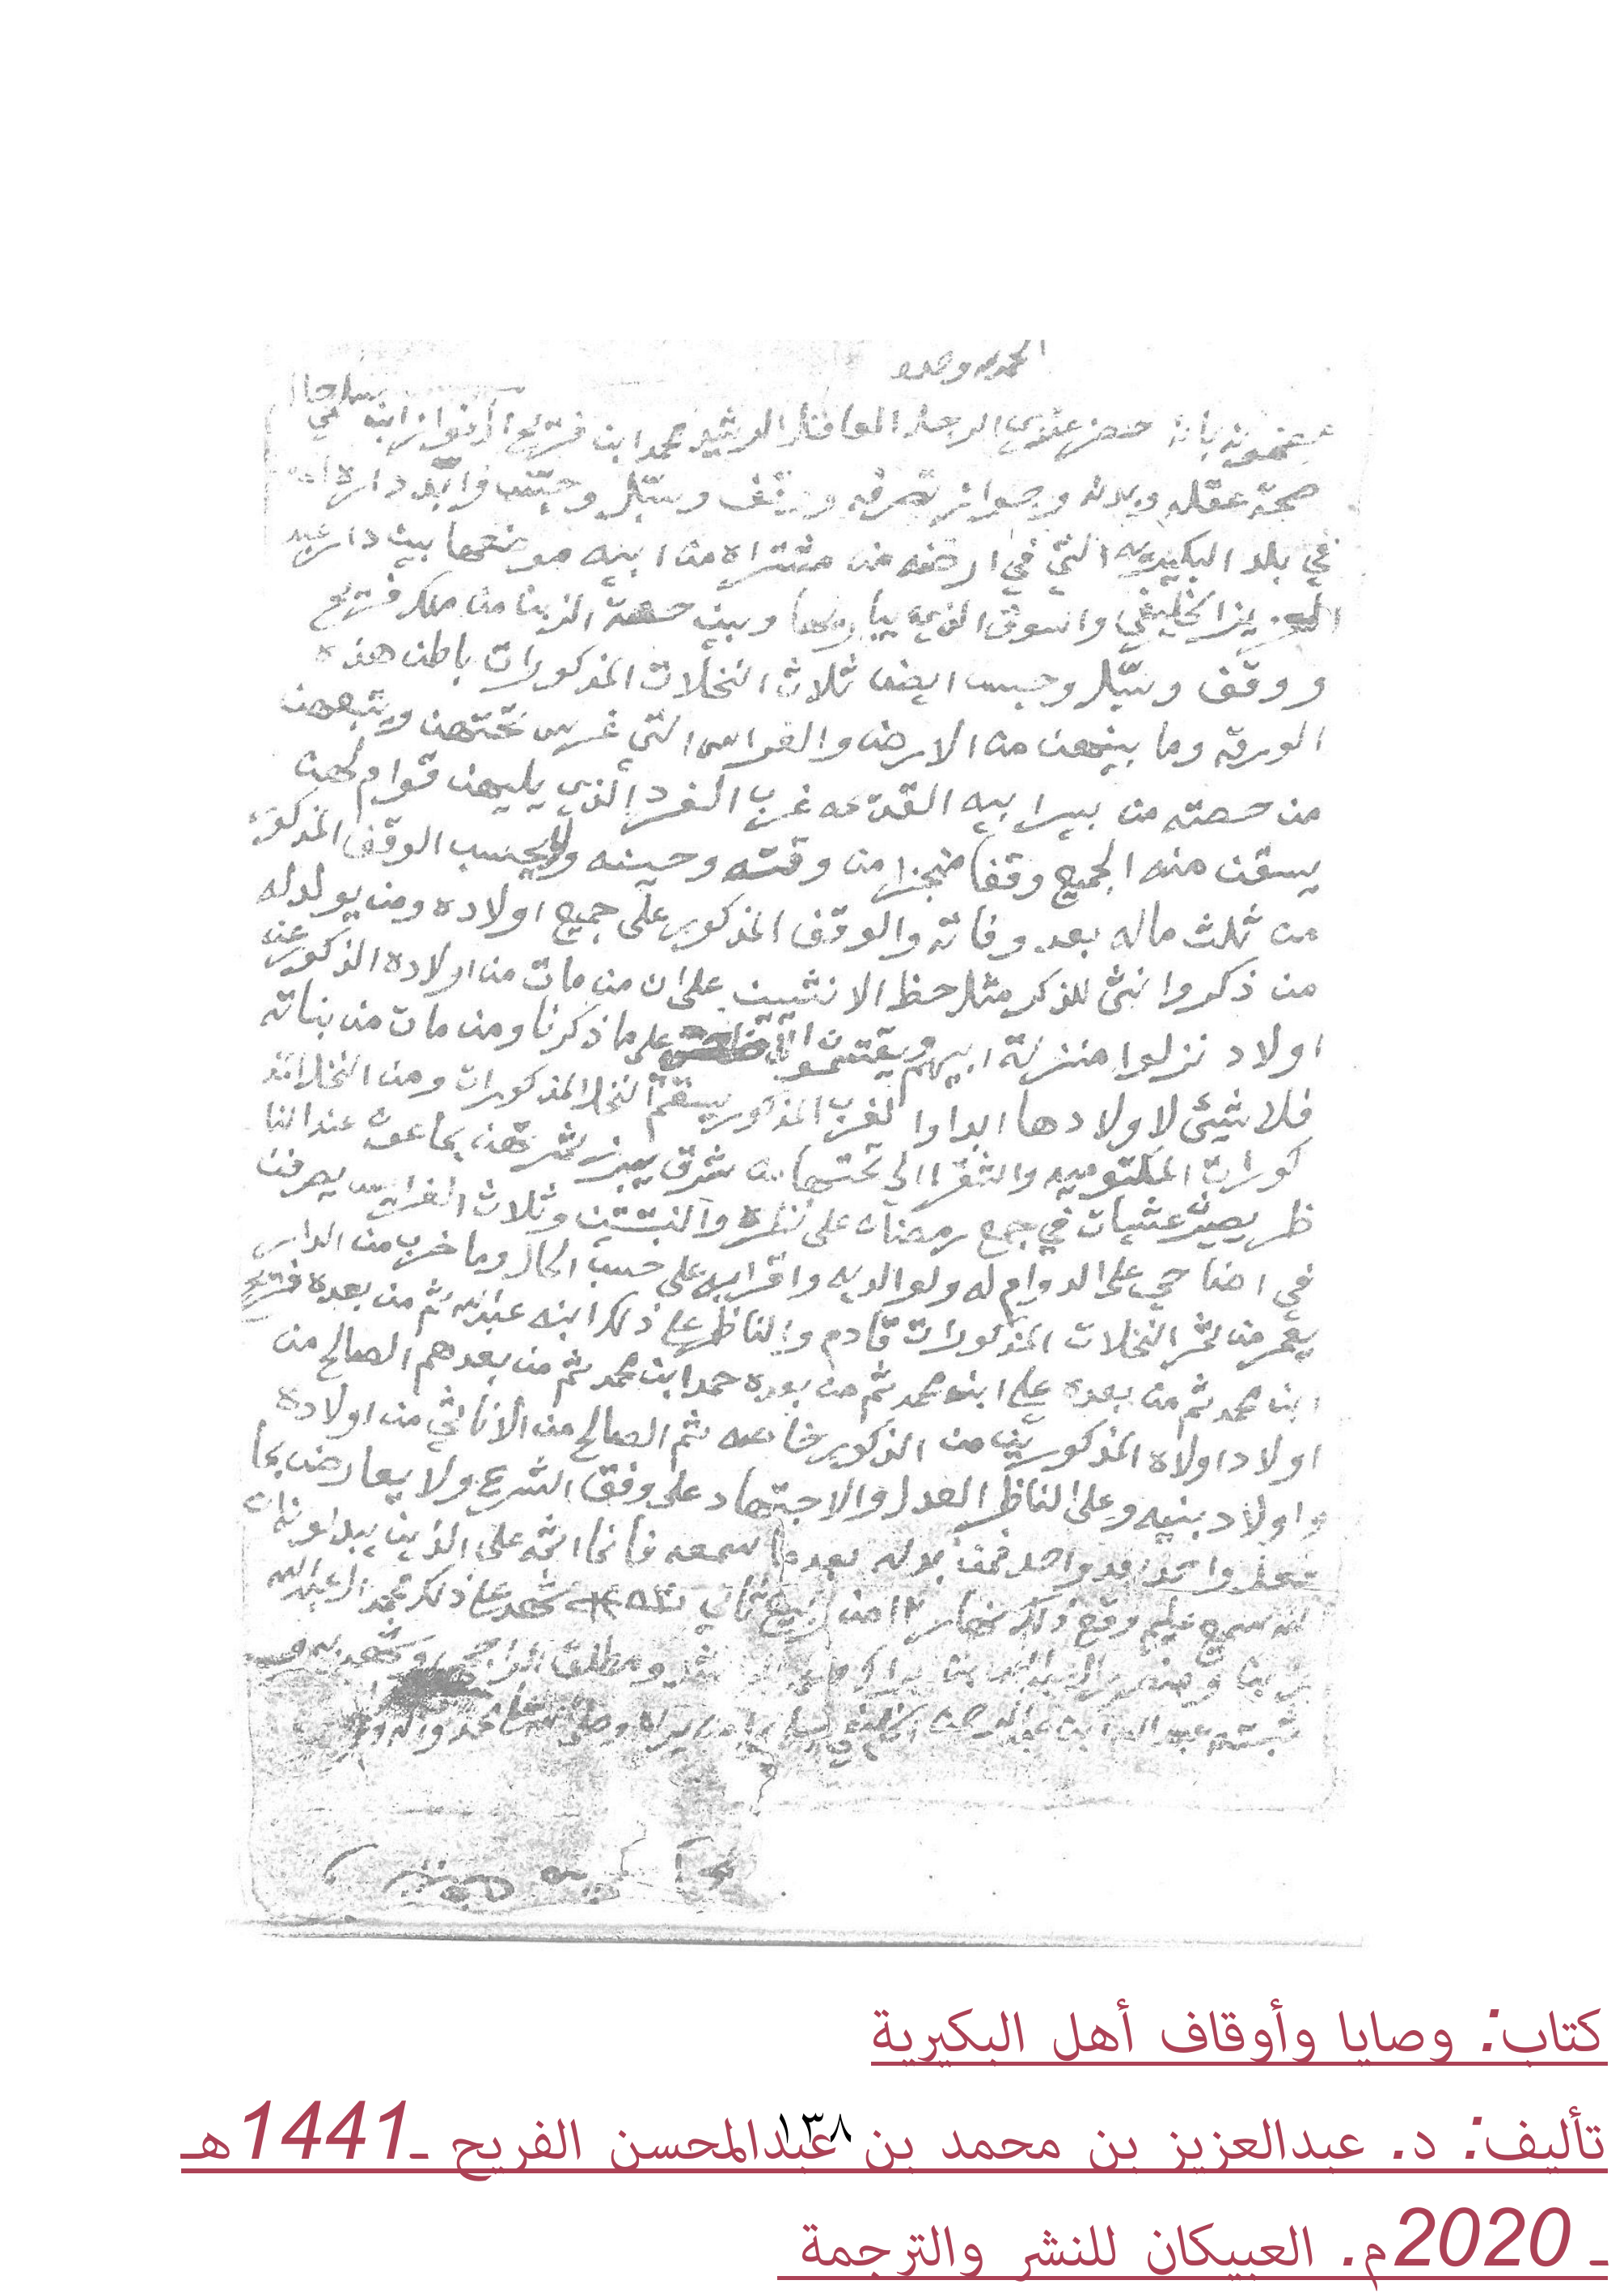 الحمد لله وحده
مضمونه بانه حضر عندي الرجل العاقل الرشيد محمد ابن فتريخ الفواز ابن في
صحة عقله وبدنه وجواز تصرفه ووقف وسبّل وحبّس وابّد داره
في بلد البكيريه التي في ارضه من مشتراه من ابيه موضعها بين دار عبد
العزيز الخليفي والسوق الذي وبين حصة الذينا من ملك فتريخ
ووقف وسبّل وحبس ايضا ثلاث النخلات المذكورات باطن هذه
الورقه وما بينهن من الارض والغراس التي غرس تحتهن ويتبعهن
من حصته من بير ابيه القدمه غرب الفرد الذي يليهن قوام لهن
يسقن منه الجميع وقفا منجزا من وقته وحينه ولا يحسب الوقف المذكور
من ثلث ماله بعد وفاته والوقف المذكور على جميع اولاده ومن يولد له
من ذكر وانثى للذكر مثل حظ الانثيين على ان من مات من اولاده الذكور عن
اولاد نزلوا منزلة ابيهم ويقتسمون على ما ذكرنا ومن مات من بناته
فلا شيئ لاولادها ابدا والغرب المذكور يسقي النخل المذكورات ومن النخلات المذ
كورات المكتوميه والشقرا الي تحتها شرق يبرز ثمرتهن بما عرف عند النا
ظر يصير عشيات في جمع رمضان على نظره والنبتتين وثلاث الغرايس يصرفن
في اضاحي على الدوام له ولوالديه واقرابه على حسب الحال وما خرب من الدار
يعمر من ثمر النخلات المذكورات قادم والناظر على ذلك ابنه عبدالله ثم من بعده فتريخ
ابن محمد ثم من بعده على ابنه محمد ثم من بعده حمد ابن محمد ثم من بعدهم الصالح من
اولاد اولاده المذكورين من الذكور خاصه ثم الصالح من الاناثي من اولاده
واولاد بنيه وعلى الناظر العدل والاجتهاد على وفق الشرع ولا يعارض بما
فعل واحد بعد واحد فمن بدله بعد ما سمعه فانما اثمه على الذين يبدلونه ان
الله سميع عليم وقع ذلك نهار ١٢ من ربيع ثاني شهد على ذلك محمد العبدالله
ومطلق الراجحي وشهد به
عبدالله ابن عبدالرحمن الخليفي وصلى الله على محمد واله
كتاب: وصايا وأوقاف أهل البكيرية
تأليف: د. عبدالعزيز بن محمد بن عبدالمحسن الفريح ـ1441هـ
١٣٨
ـ 2020م. العبيكان للنشر والترجمة